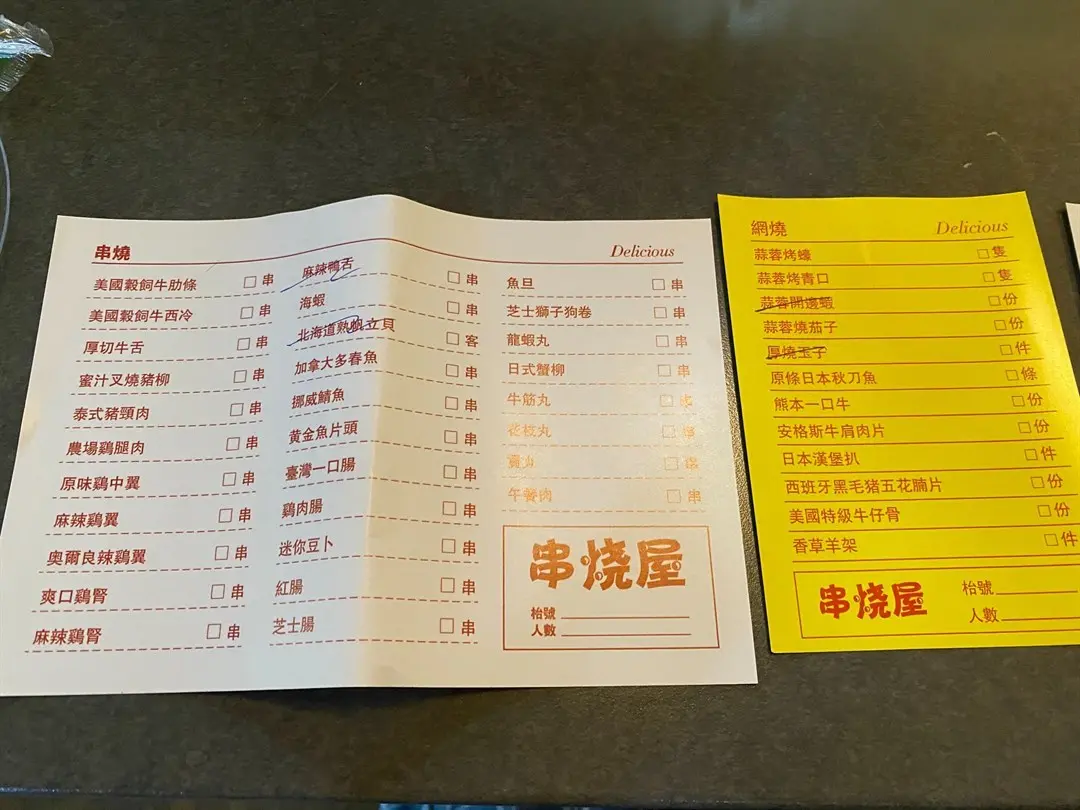 串燒 Delicious
美國穀飼牛肋條 □ 串
美國穀飼牛西冷 □ 串
厚切牛舌 □ 串
蜜汁叉燒豬柳 □ 串
泰式豬頸肉 □ 串
農場鷄腿肉 □ 串
原味鷄中翼 □ 串
麻辣鷄翼 □ 串
奧爾良辣鷄翼 □ 串
爽口鷄腎 □ 串
麻辣鷄腎 □ 串
麻辣鴨舌 □ 串
海蝦 □ 串
北海道熟帆立貝 □ 客
加拿大多春魚 □ 串
挪威鯖魚 □ 串
黄金魚片頭 □ 串
臺灣一口腸 □ 串
鷄肉腸 □ 串
迷你豆卜 □ 串
紅腸 □ 串
芝士腸 □ 串
魚旦 □ 串
芝士獅子狗卷 □ 串
龍蝦丸 □ 串
日式蟹柳 □ 串
牛筋丸 □ 串
花枝丸 □ 串
貢丸 □ 串
午餐肉 □ 串
串烧屋
枱號
人數
網燒 Delicious
蒜蓉烤蠔 □ 隻
蒜蓉烤青口 □ 隻
蒜蓉開邊蝦 □ 份
蒜蓉燒茄子 □ 份
厚燒玉子 □ 件
原條日本秋刀魚 □ 條
熊本一口牛 □ 份
安格斯牛肩肉片 □ 份
日本漢堡扒 □ 件
西班牙黑毛猪五花腩片 □ 份
美國特級牛仔骨 □ 份
香草羊架 □ 件
串烧屋
枱號
人數